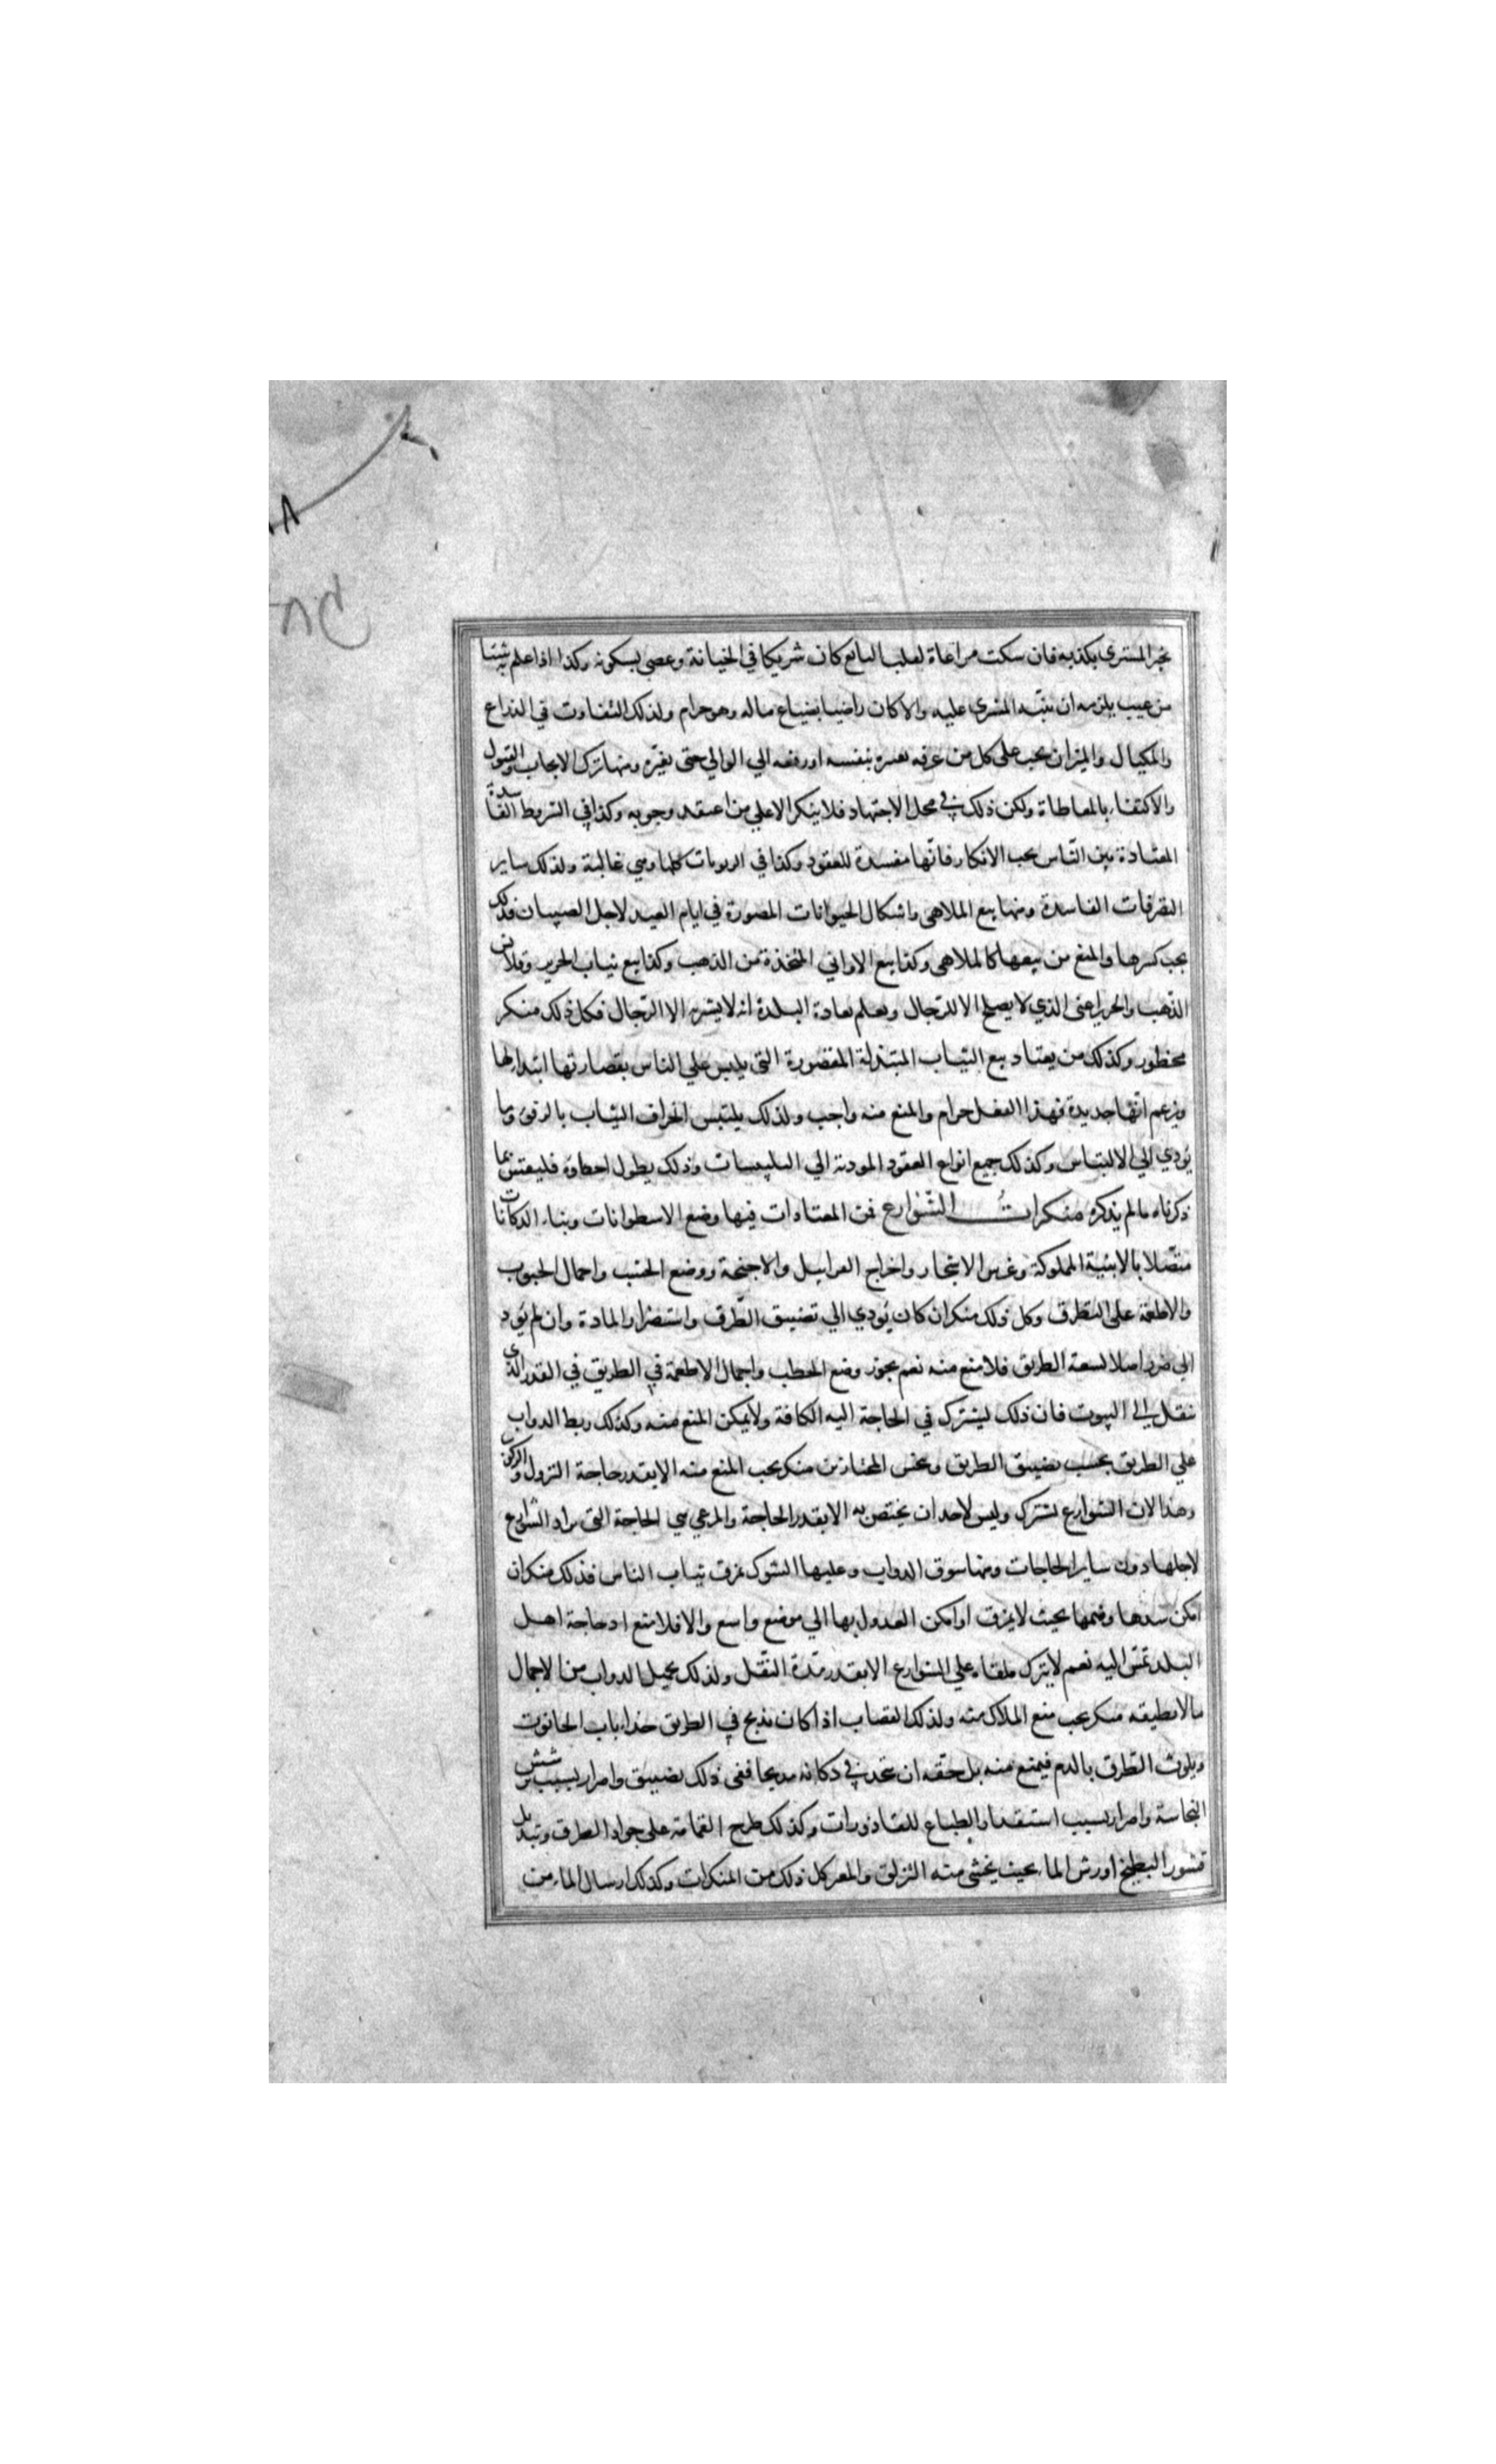 يخبر المشتري بكذبه فان سكت مراعاة لقلب البايع كان شريكا في الخيانة وعصى بسكوته وكذا اذا علم به شيئا
من عيب يلزمه ان ينبّه المشتري عليه والا كان راضيا بضياع ماله وهو حرام ولذلك التفاوت في الذراع
والمكيال والميزان يجب على كل من عرفه تغييره بنفسه او رفعه الي الوالي حتى يغيّره ومنها ترك الايجاب والقبول
والاكتفاء بالمعاطاة ولكن ذلك في محل الاجتهاد فلا ينكر الا علي من اعتقد وجوبه وكذا في الشروط الفاسدة
المعتادة بين النّاس يجب الانكار فانّها مفسدة للعقود وكذا في الربويات كلها وهي غالبة ولذلك ساير
التصرفات الفاسدة ومنها بيع الملاهي واشكال الحيوانات المصورة في ايام العيد لاجل الصبيان فذلك
يجب كسرها والمنع من بيعها كالملاهي وكذا بيع الاواني المتخذة من الذهب وكذا بيع ثياب الحرير وقلانس
الذّهب والحرير اعني الذي لا يصلح الا للرجال ويعلم بعادة البلدة انه لا يشتريه الا الرّجال فكل ذلك منكر
محظور وكذلك من يعتاد بيع الثياب المبتذلة المقصورة التي يلبس علي الناس بقصارتها ابتذالها
ويزعم انّها جديدة فهذا الفعل حرام والمنع منه واجب ولذلك يلتبس انخراق الثياب بالرفو وما
يؤدي الي الالتباس وكذلك جميع انواع العقود المودية الي التلبيسات وذلك يطول احصاؤه فليقس بما
ذكرناه ما لم يذكره منكراتُ الشّوارع فمن المعتادات فيها وضع الاسطوانات وبناء الدكانات
متّصلا بالابنية المملوكة وغرس الاشجار واخراج الغراييل والاجنحة ووضع الخشب واحمال الحبوب
والاطعمة على الطرق وكل ذلك منكر ان كان يؤدي الي تضييق الطّرق واستضرار المادة وان لم يؤد
الي ضرر اصلا لسعة الطريق فلا منع منه نعم يجوز وضع الحطب واحمال الاطعمة في الطريق في القدر الذي
ينقل الى البيوت فان ذلك يشترك في الحاجة اليه الكافة ولا يمكن المنع منه وكذلك ربط الدواب
علي الطريق بحيث يضيق الطريق ونجس المجتازين منكر يجب المنع منه الا بقدر حاجة النزول والركوب
وهذا لان الشوارع تشترك وليس لاحد ان يختص به الا بقدر الحاجة والمرعي هي الحاجة التي تراد الشوارع
لاجلها دون ساير الحاجات ومنها سوق الدواب وعليها الشوك يمزق ثياب الناس فذلك منكر ان
امكن شدها وضمها بحيث لا يمزق او امكن العدول بها الي موضع واسع والا فلا منع اذ حاجة اهل
البلد تمس اليه نعم لا يترك ملقاه علي الشوارع الا بقدر مدّة النّقل ولذلك تحميل الدواب من الاحمال
ما لا تطيقه منكر يجب منع الملاك منه ولذلك القصاب اذا كان يذبح في الطريق حذاء باب الحانوت
ويلوث الطّرق بالدم فيمنع منه بل حقّه ان يتخذ في دكانه مذبحا ففي ذلك تضييق واضرار بسبب ترشش
النجاسة واضرار بسبب استقذار الطباع للقاذورات وكذلك طرح القمامة على جواد الطرق وتبديل
قشور البطيخ او رش الماء بحيث يخشى منه التزلق والمعر كل ذلك من المنكرات وكذلك ارسال الماء من